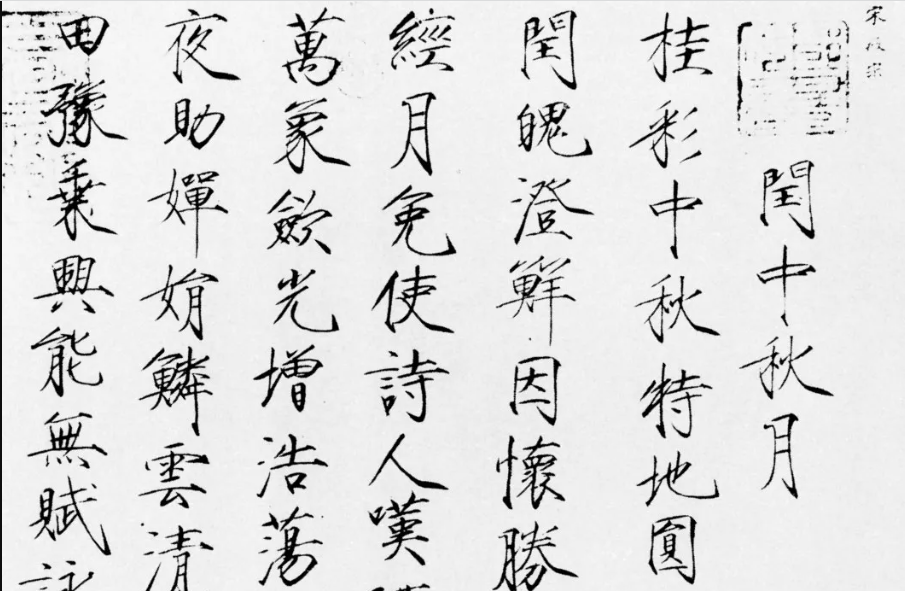 宋徽宗
閏中秋月
桂彩中秋特地圓
閏魄澄鮮因懷勝
經月免使詩人嘆
萬象歛光增浩蕩
夜助嬋娟鱗雲清
田豫乗興能無賦詠